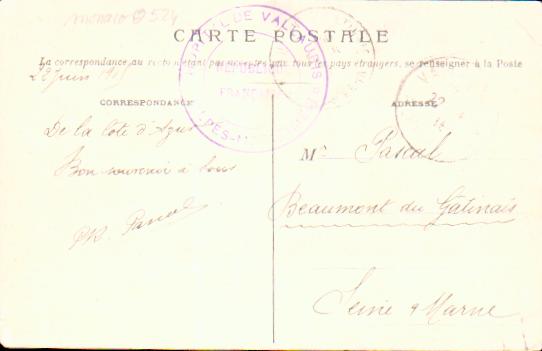 monaco 524
CARTE POSTALE
La correspondance au recto n'étant pas acceptée par tous les pays étrangers, se renseigner à la Poste
CORRESPONDANCE
De la Côte d'Azur
Bon souvenir à tous
Ph. Pascal
HOPITAL DE VALLAURIS
RÉPUBLIQUE
FRANÇAISE
ADRESSE
Mr Pascal
Beaumont du Gatinais
Seine & Marne